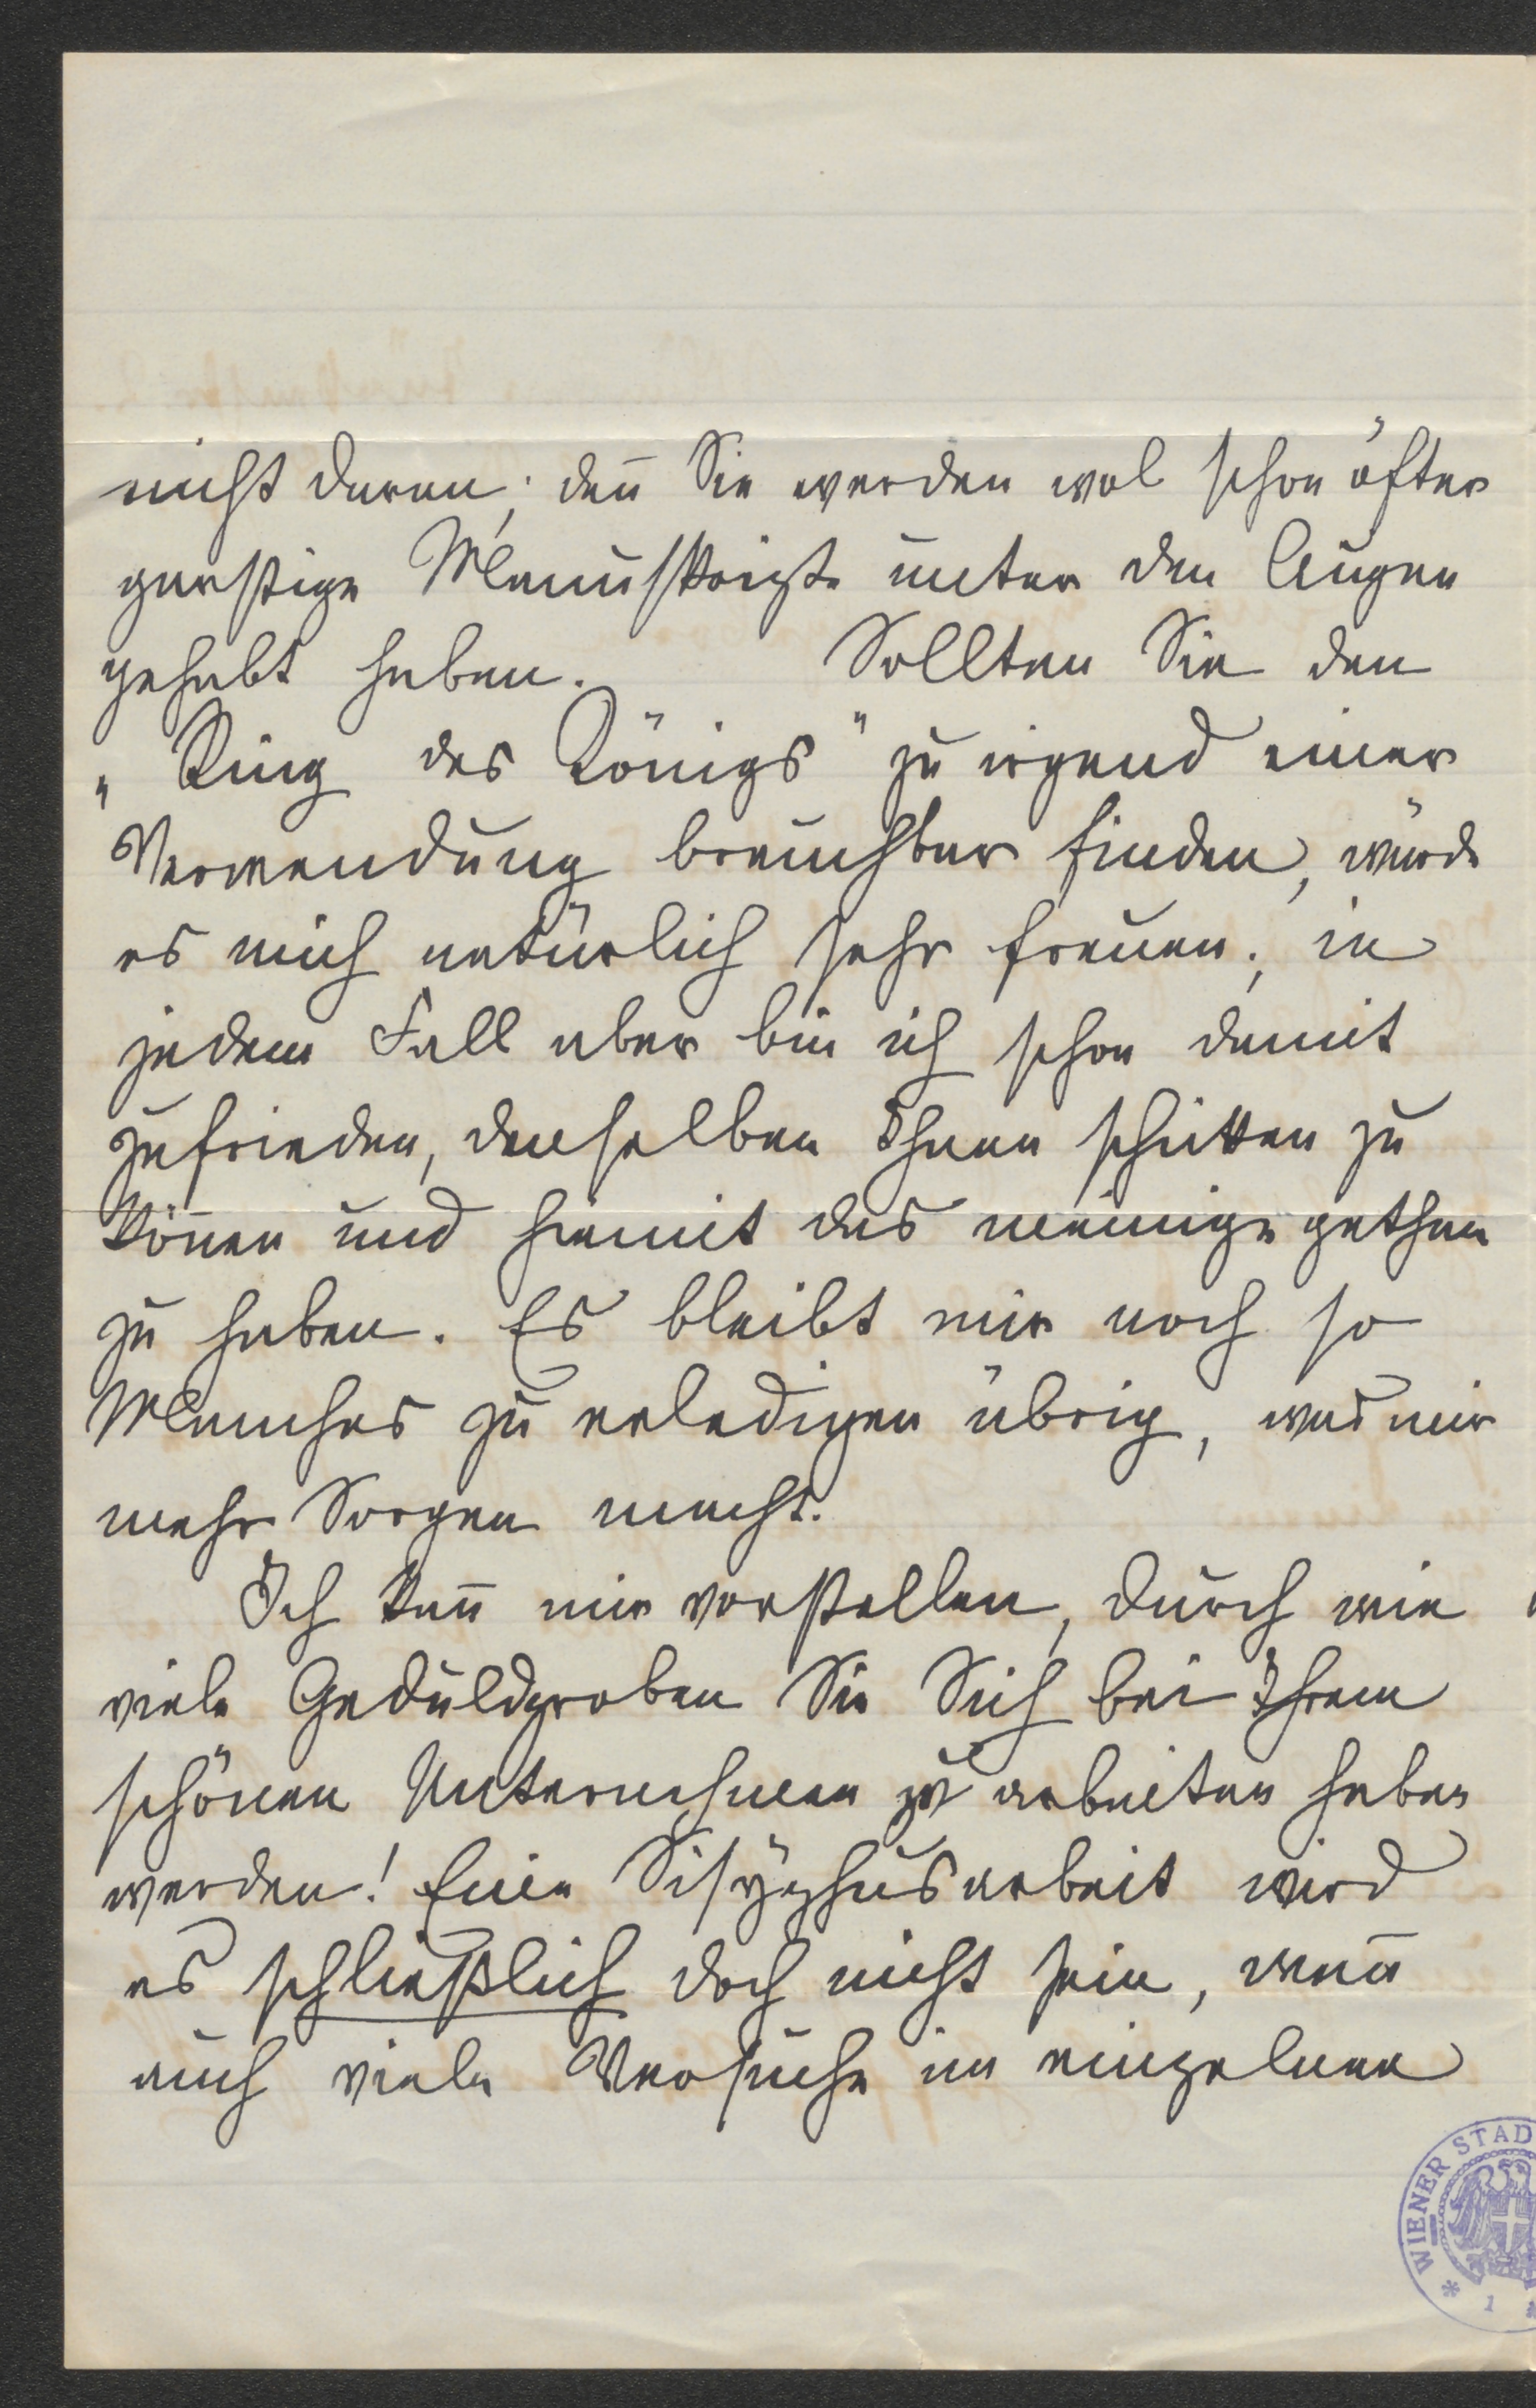 nicht daran; deñ Sie werden wol schon öfter
garstige Manuskripte unter den Augen
gehabt haben. Sollten Sie den
„Ring des Königs" zu irgend einer
Verwendung brauchbar finden, würde
es mich natürlich sehr freuen; in
jedem Fall aber bin ich schon damit
zufrieden, denselben Ihnen schicken zu
köñen und hiemit das meinige gethan
zu haben. Es bleibt mir noch so
Manches zu erledigen übrig, was mir
mehr Sorgen macht.
Ich kañ mir vorstellen, durch wie
viele Geduldproben Sie Sich bei Ihrem
schönen Unternehmen zu arbeiten haben
werden! Eine Sisÿphusarbeit wird
es schließlich doch nicht sein, weñ
auch viele Versuche im einzelnen
WIENER STAD
1